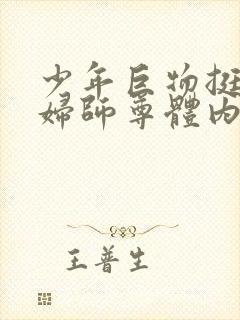 少年巨物挺
婦師尊體內
王普生